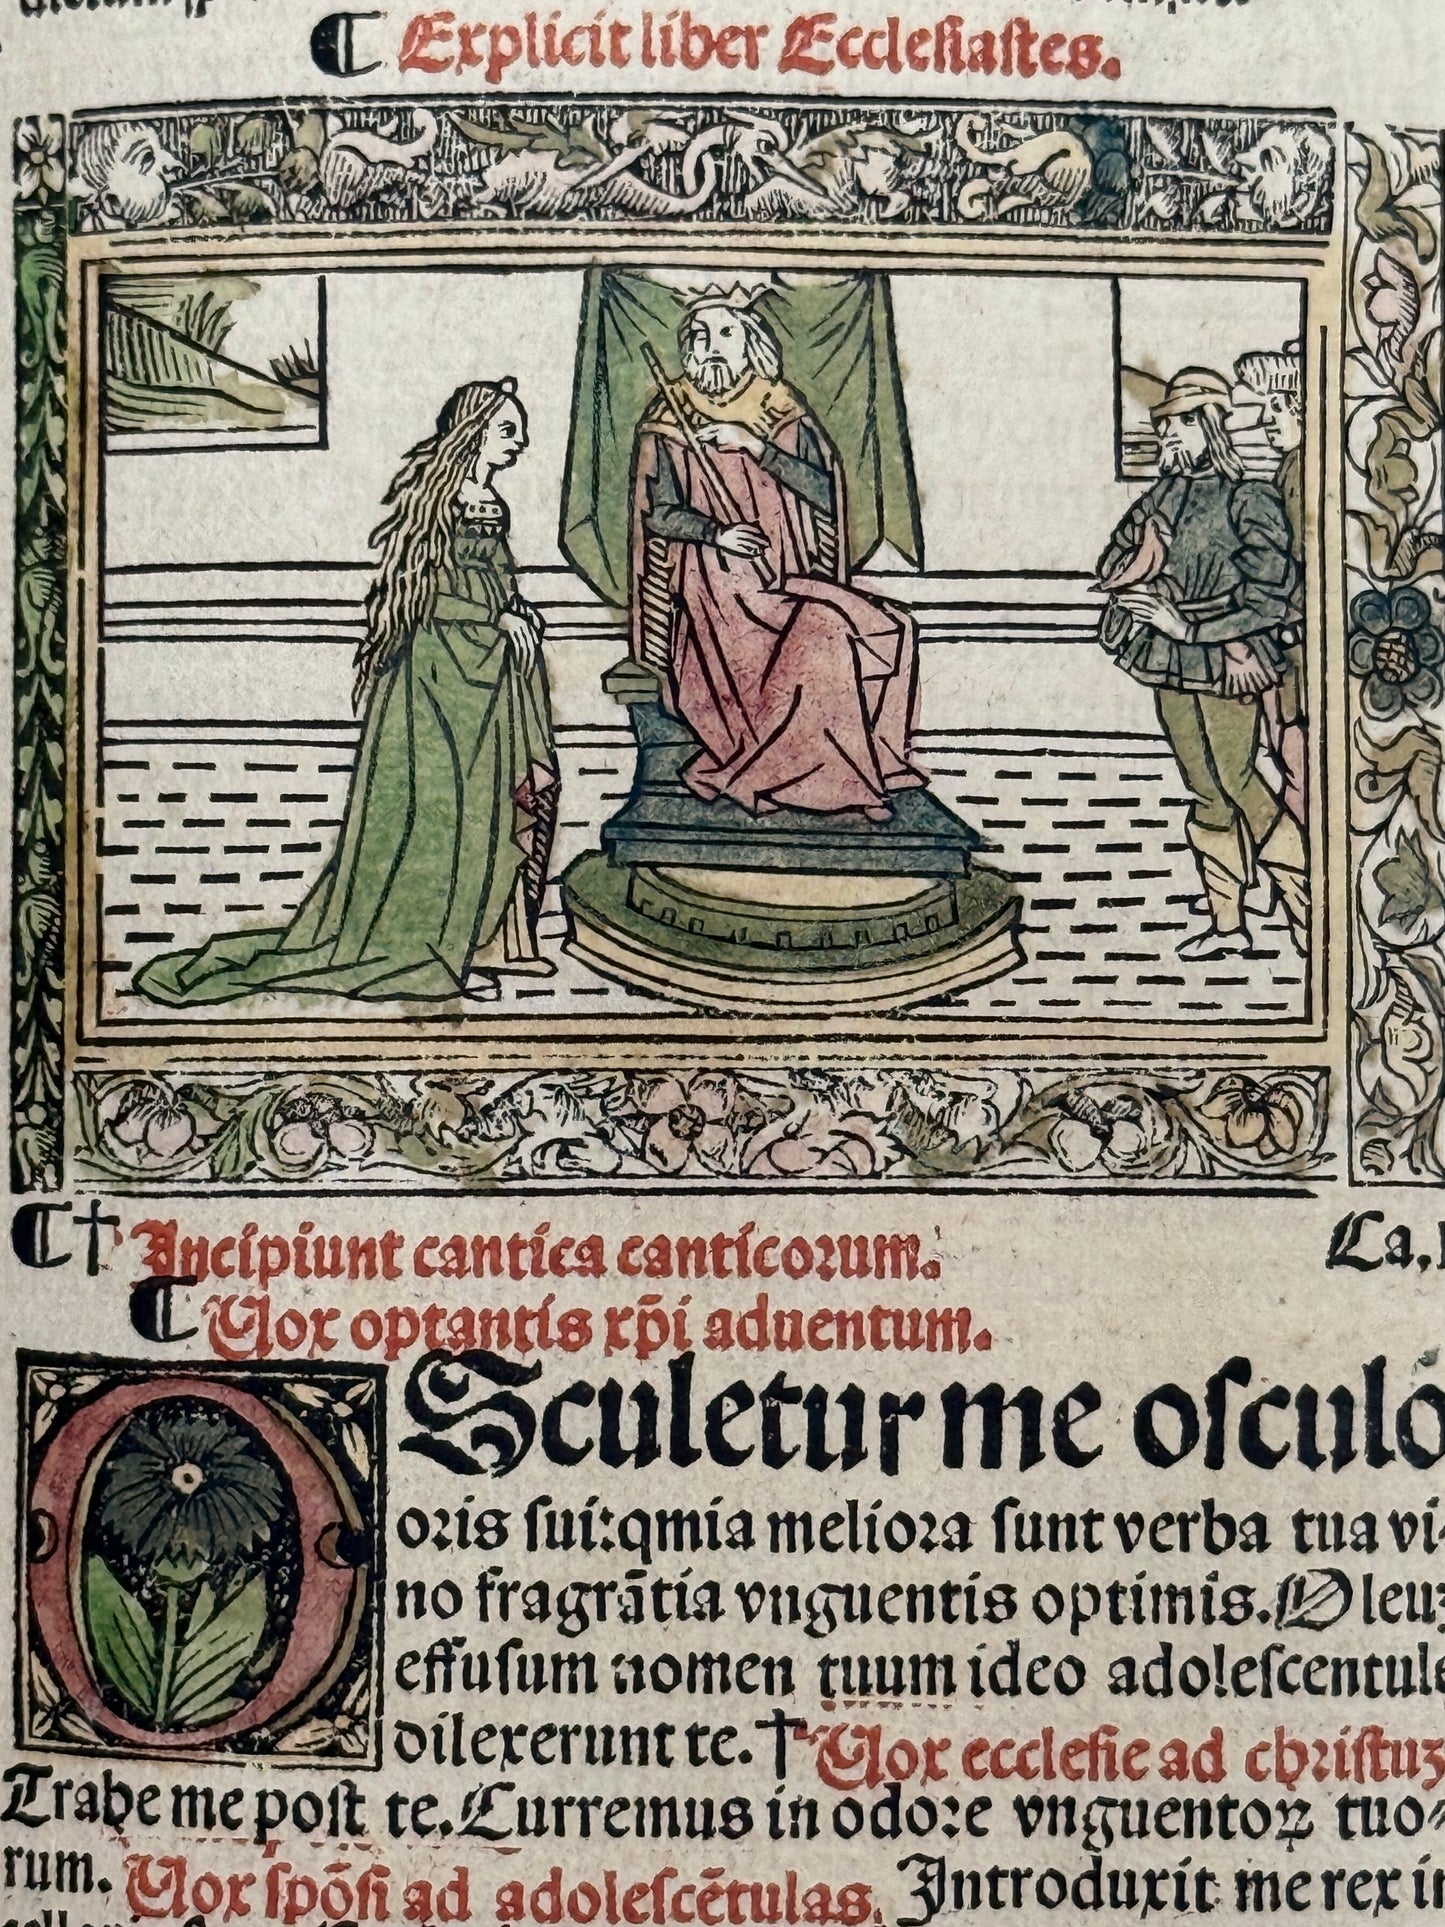 ⁋ Explicit liber Ecclesiastes.
⁋ † Incipiunt cantica canticorum. Ca.
⁋ Vox optantis xp̄i aduentum.
OSculetur me osculo
oris sui:qmia meliora sunt verba tua vi-
no fragrātia vnguentis optimis. Oleuȝ
effusum nomen tuum ideo adolescentule
dilexerunt te. † Vox ecclesie ad christuȝ
Trahe me post te. Curremus in odore vnguentoꝝ tuo⸗
rum. Vox spōsi ad adolescētulas. Introduxit me rex in